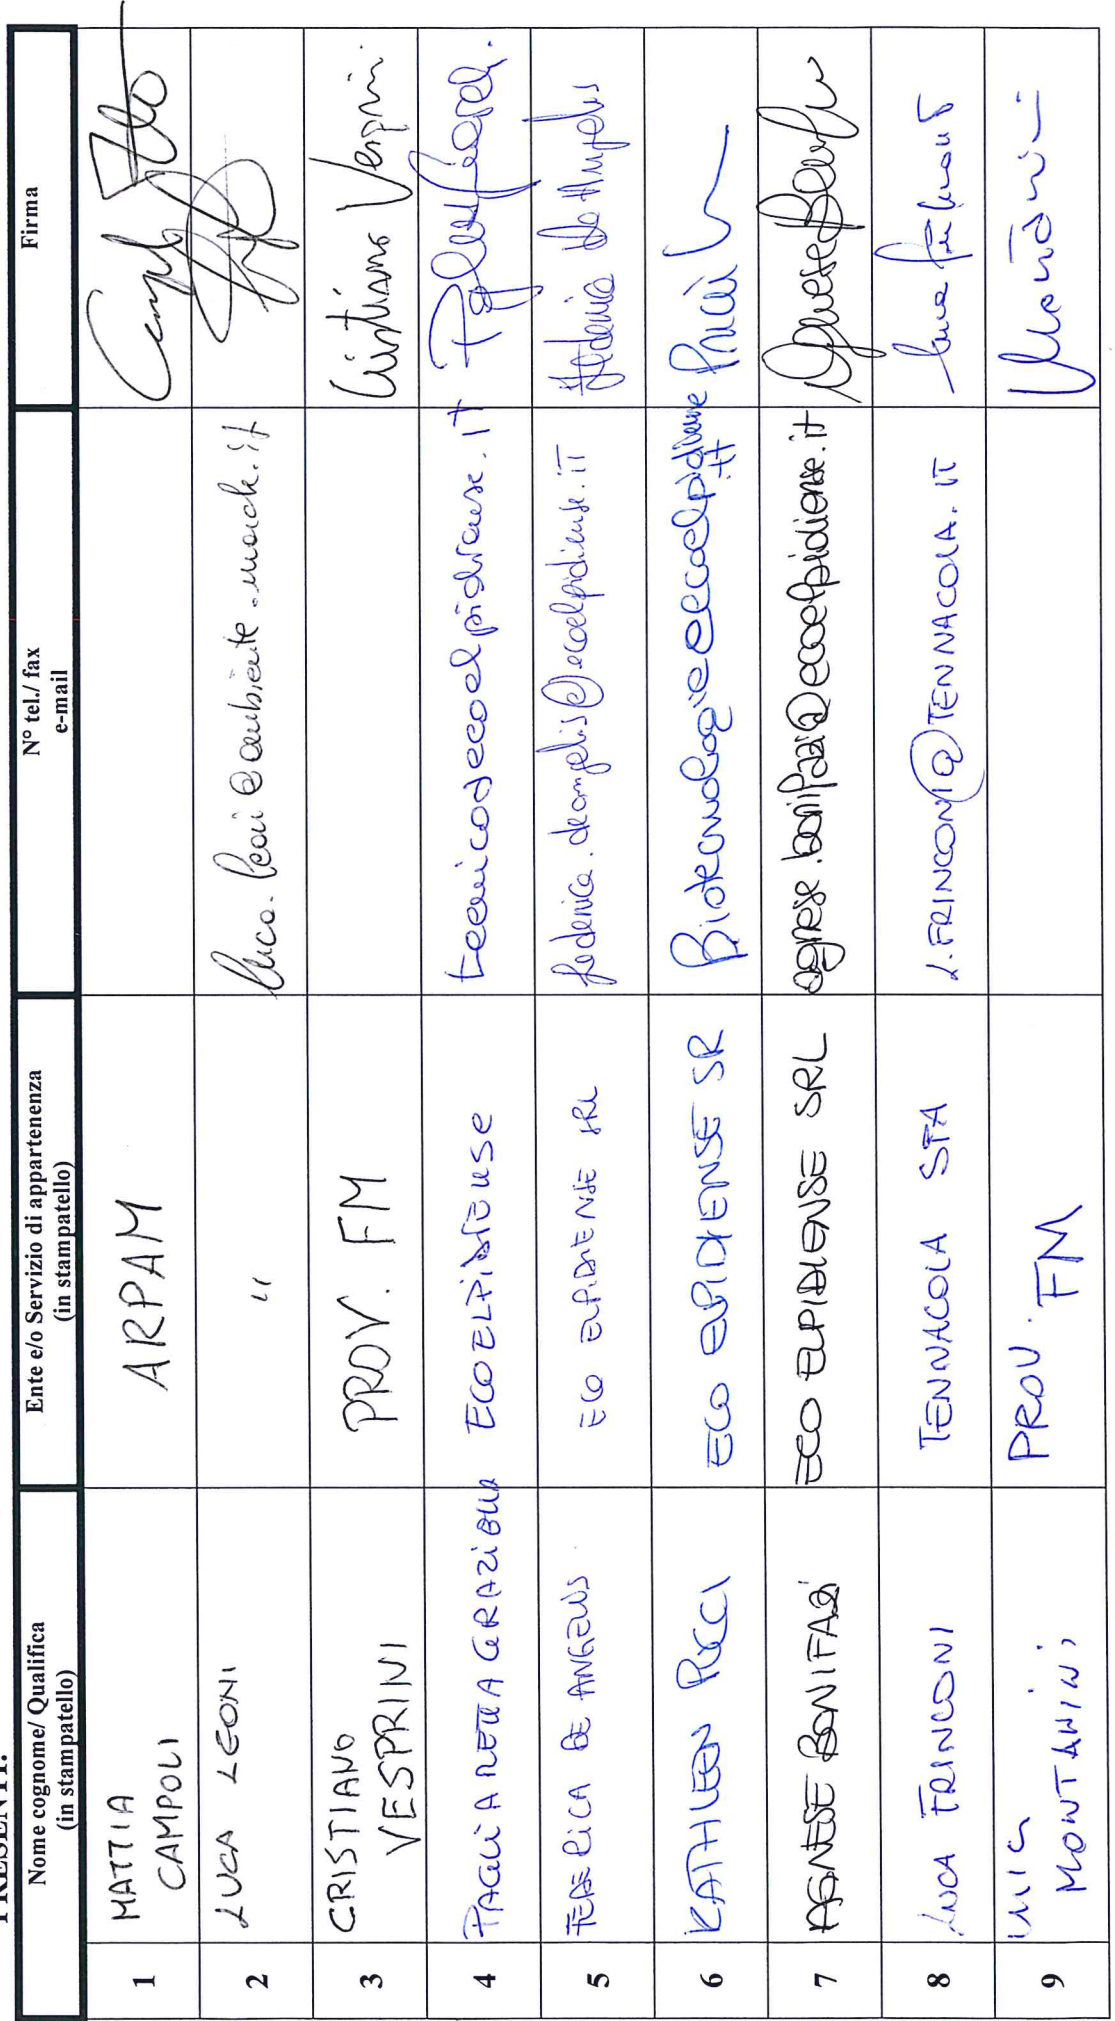 PRESENTI:
Nome cognome/ Qualifica
(in stampatello)
Ente e/o Servizio di appartenenza
(in stampatello)
N° tel./ fax
e-mail
Firma
1
MATTIA
CAMPOLI
ARPAM
2
LUCA LEONI
"
luca.leoni@ambiente.marche.it
3
CRISTIANO
VESPRINI
PROV. FM
Cristiano Vesprini
4
PAGLIARETTA GRAZIELLA
ECOELPIDIENSE
tecnico@ecoelpidiense.it
5
FEDERICA DE ANGELIS
ECO ELPIDIENSE SRL
federica.deangelis@ecoelpidiense.it
Federica De Angelis
6
KATHLEEN PUCCI
ECO ELPIDIENSE SR
Biotecnologie@ecoelpidiense
.it
Pucci
7
AGNESE BONIFAZI
ECO ELPIDIENSE SRL
agnese.bonifazi@ecoelpidiense.it
Agnese Bonifazi
8
LUCA FRINCONI
TENNACOLA SPA
L.FRINCONI@TENNACOLA.IT
Luca Frinconi
9
MONTANINI
PROV. FM
Montanini